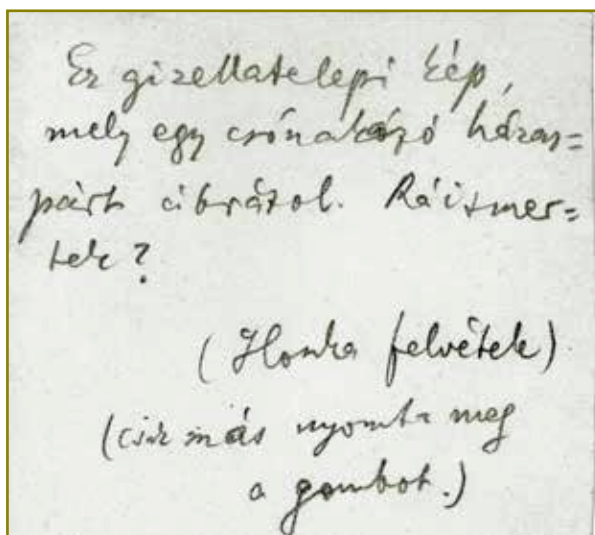 Ez gizellatelepi kép,
mely egy csónakázó háras=
párt ábrázol. Ráismer=
tek?
(Ilonka felvétele)
(csak más nyomta meg
a gombot.)